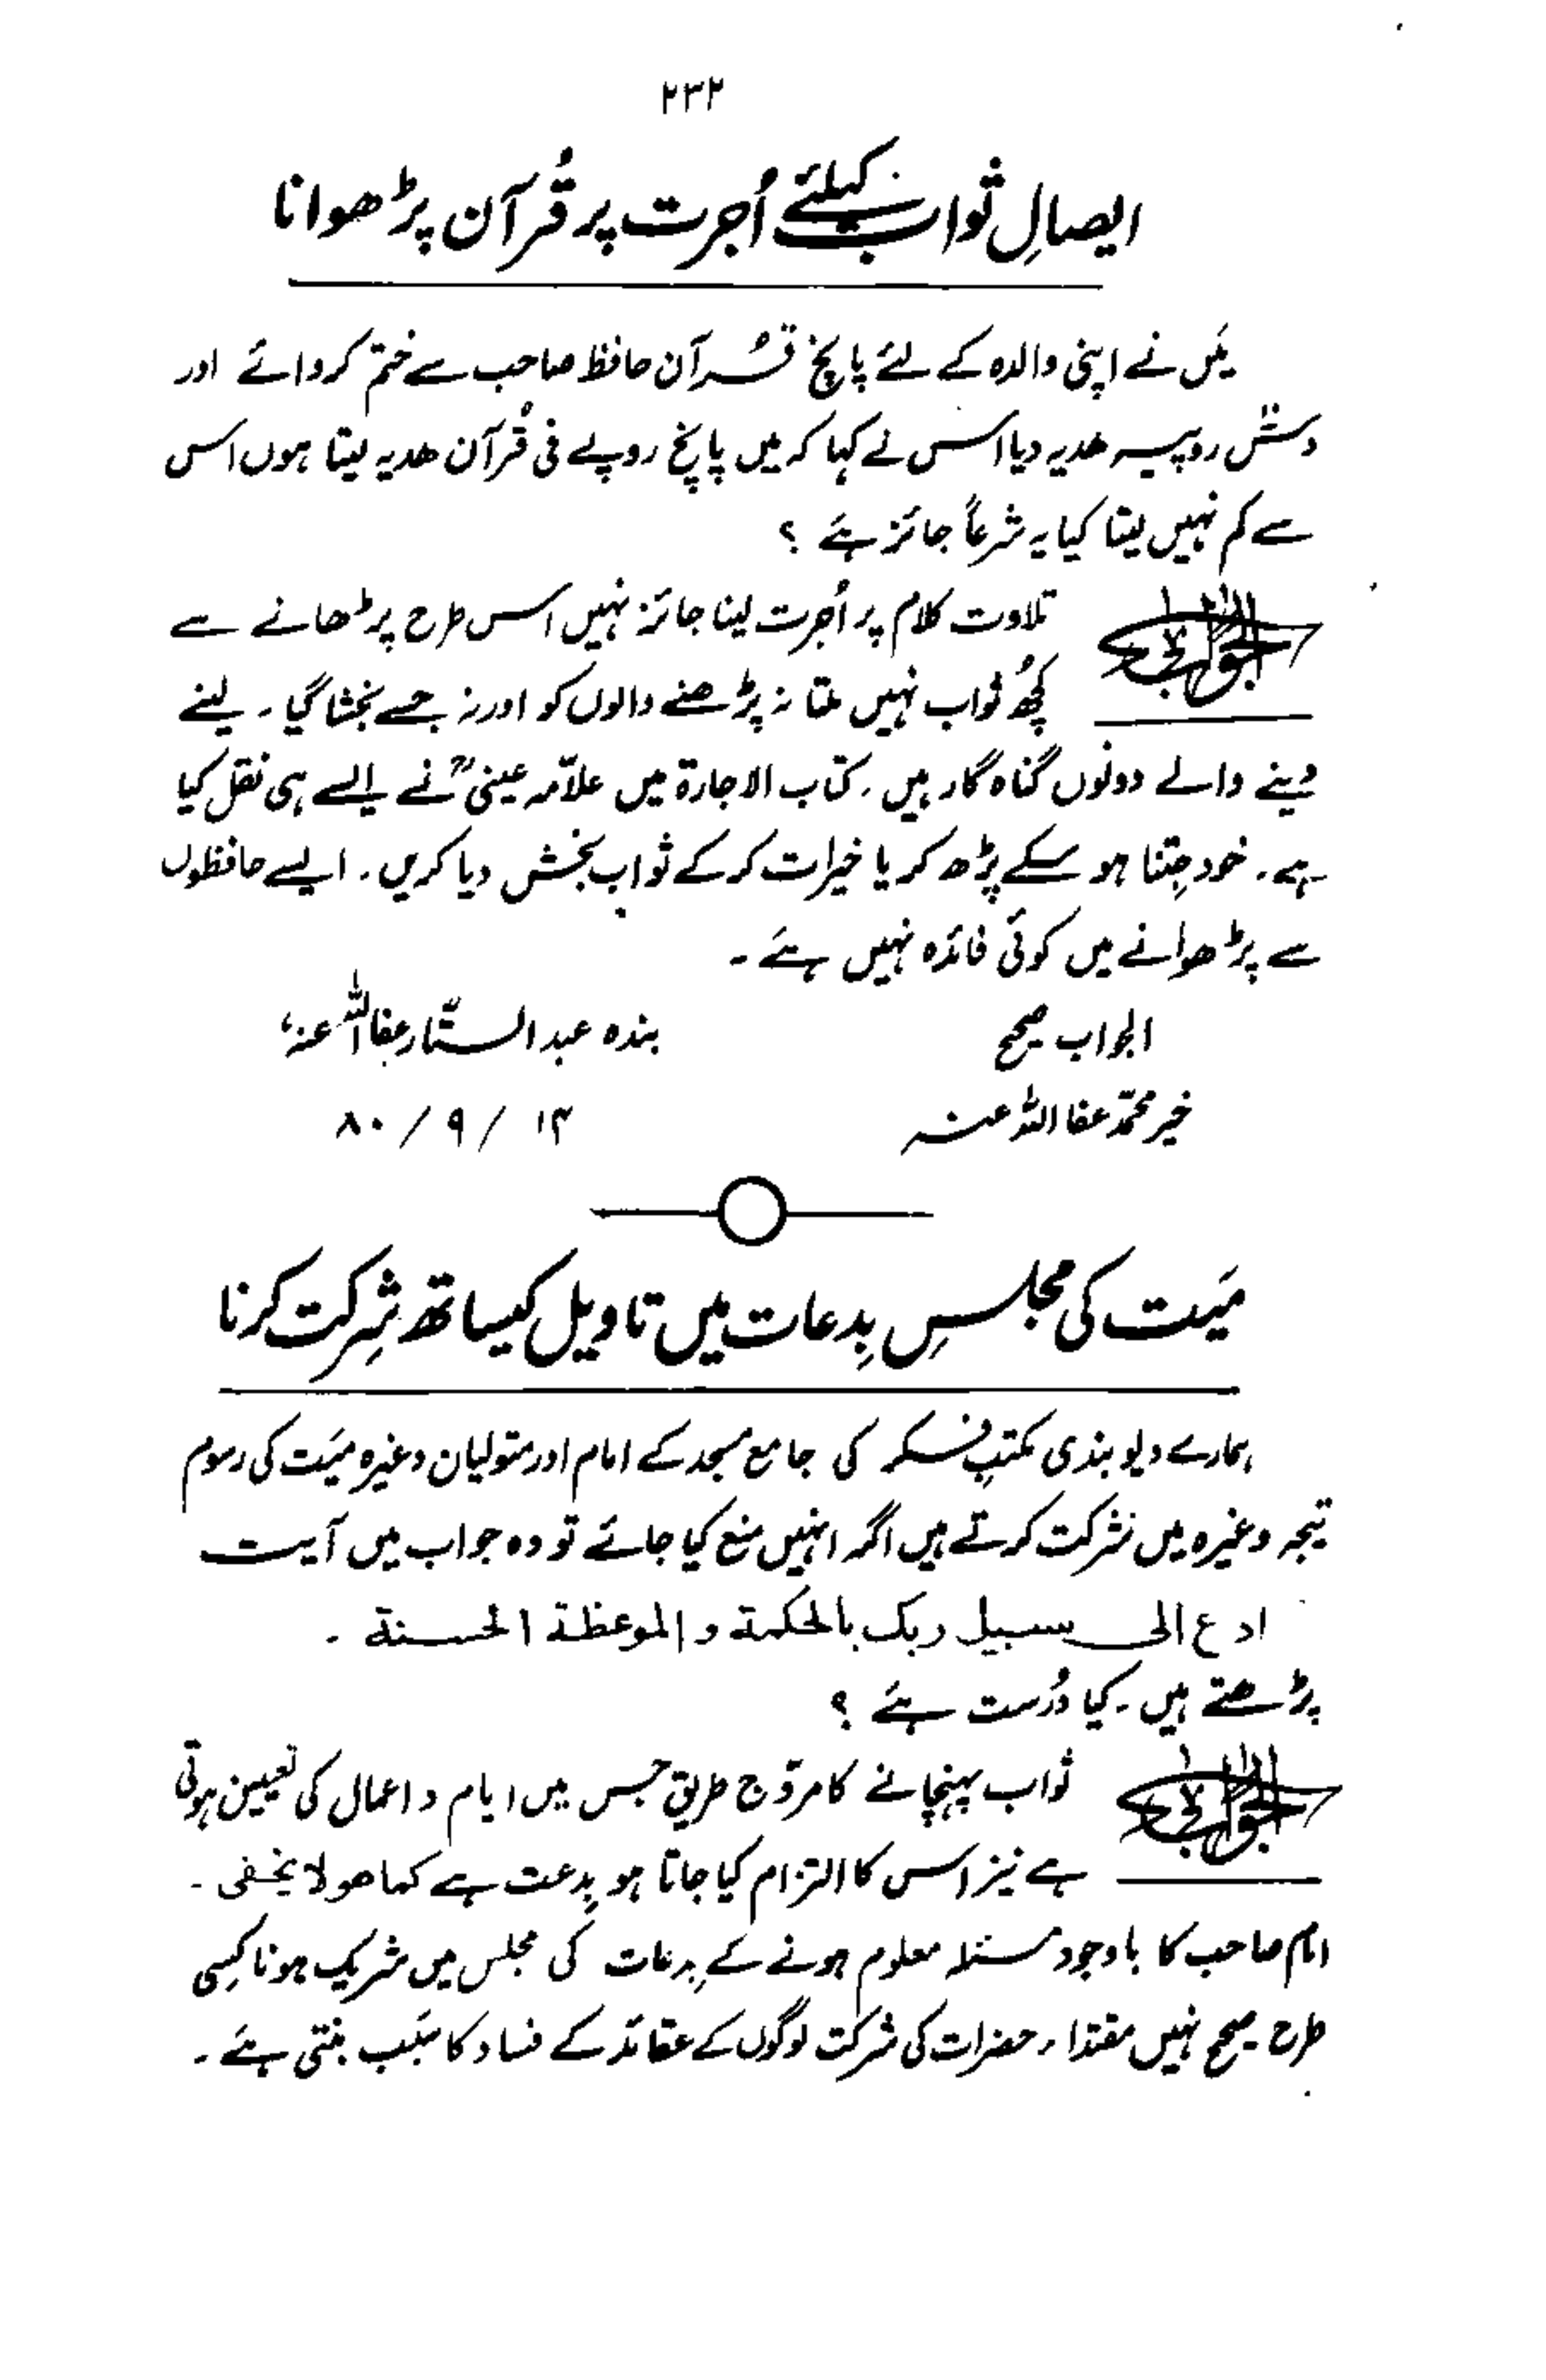 ۲۳۲
ایصالِ ثواب کیلئے اُجرت پر قُرآن پڑھوانا
میَں نے اپنی والدہ کے لئے پانچ قُرآن حافظ صاحب سے ختم کروائے اور
دسش روپیہ ھدیہ دیا اس نے کہا کہ میں پانچ روپے فی قُرآن ھدیہ لیتا ہوں اس
سے کم نہیں لیتا کیا یہ شرعاً جائز ہے ؟
الجواب
تلاوت کلام پر اُجرت لینا جائز نہیں اس طرح پڑھانے سے
کچھُ ثواب نہیں ملتا نہ پڑھنے والوں کو اور نہ جسے بخشا گیا۔ لینے
دینے والے دونوں گناہ گار ہیں۔ کتاب الاجارۃ میں علامّہ عینیؒ نے ایسے ہی نقل کیا
ہے۔ خود جِتنا ہو سکے پڑھ کر یا خیرات کر کے ثواب بخش دیا کریں۔ ایسے حافظوں
سے پڑھوانے میں کوئی فائدہ نہیں ہے۔
الجواب صحیح بندہ عبدالستّار عفااللہ عنہ،
خیر محمّد عفا اللہ عنہ ۱۳ / ۹ / ۸۰
میَت کی مجلسِ بِدعات میں تاویل کیساتھ شِرکت کرنا
ہمارے دیوبندی مکتبِ فکر کی جامع مسجد کے امام اور متولیان وغیرہ میَت کی رسوم
تیجہ وغیرہ میں شرکت کرتے ہیں اگر انہیں منع کیا جائے تو وہ جواب میں آیت
ادع الی سبیل ربک بالحکمۃ والموعظۃ الحسنۃ ۔
پڑھتے ہیں۔ کیا دُرست ہے ؟
الجواب
ثواب پہنچانے کا مروّج طریق جس میں ایام و اعمال کی تعیین ہوتی
ہے نیز اس کا التزام کیا جاتا ہو بِدعت ہے کما ھو لا یخفی ۔
امام صاحب کا باوجود مسئلہ معلوم ہونے کے بِدعات کی مجلس میں شریک ہونا کِسی
طرح صحیح نہیں مقتداء حضرات کی شرکت لوگوں کے عقائد کے فساد کا سبَب بنتی ہے۔